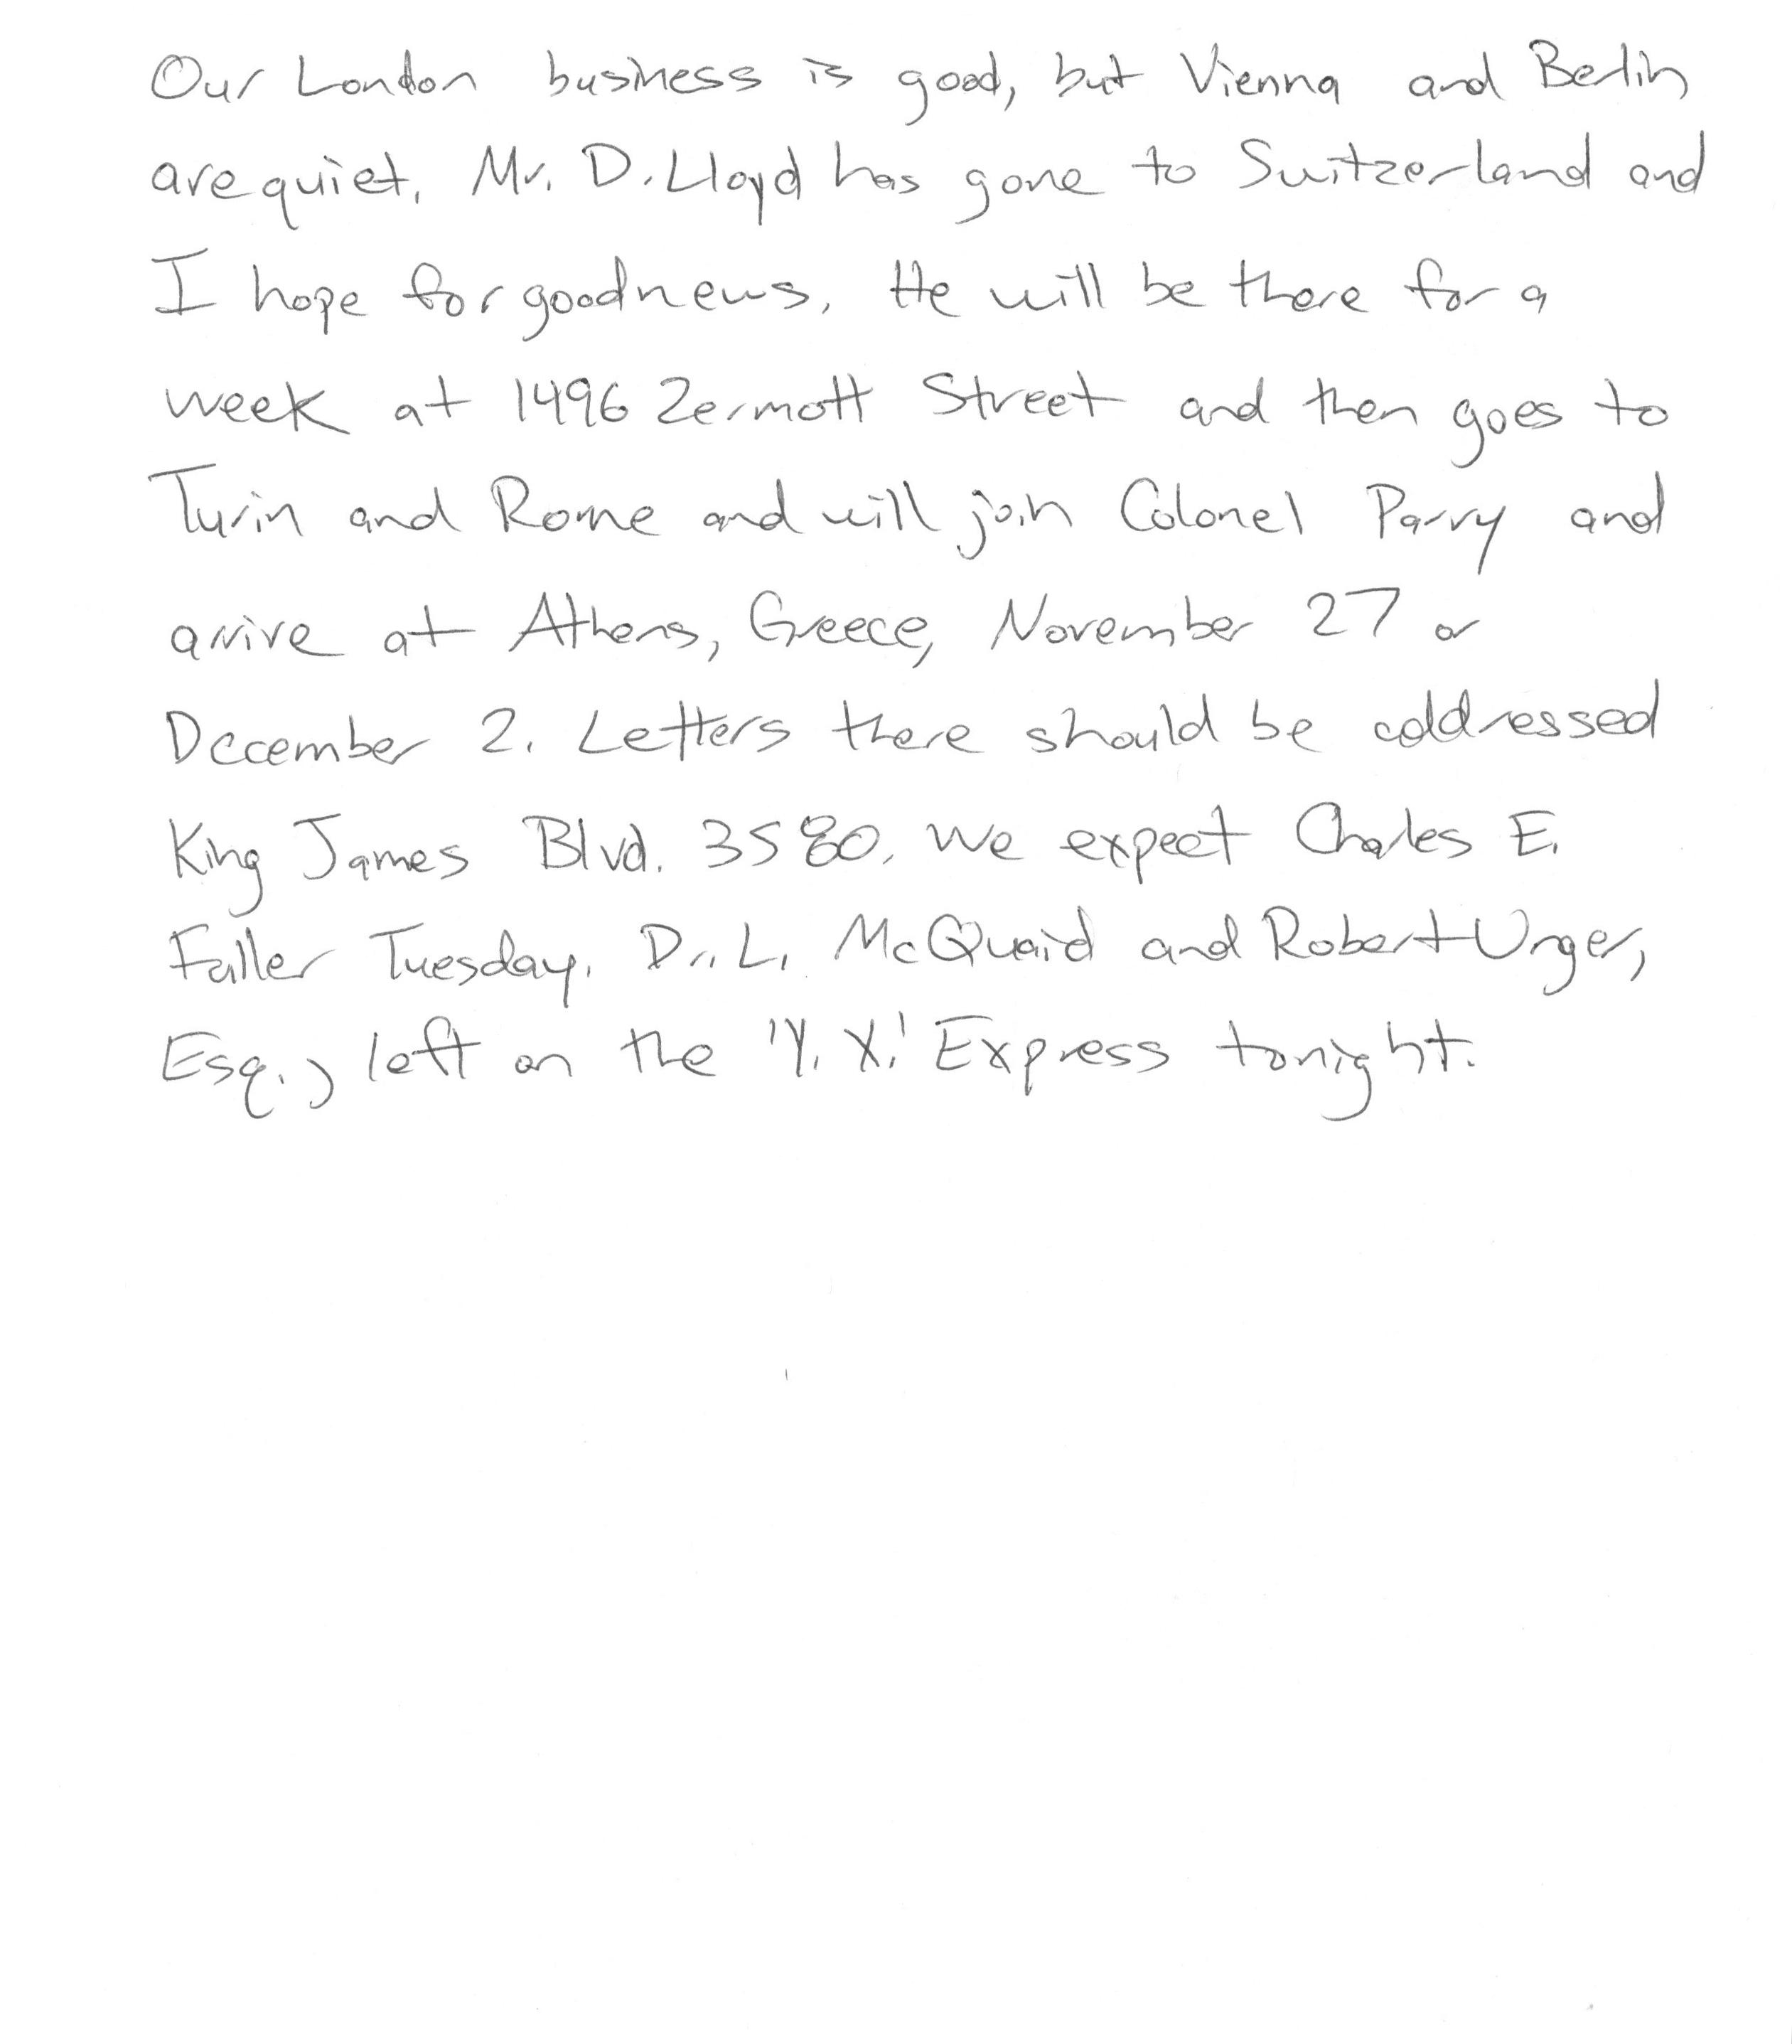 Our London business is good, but Vienna and Berlin
are quiet. Mr. D. Lloyd has gone to Switzerland and
I hope for good news. He will be there for a
week at 1496 Zermott Street and then goes to
Turin and Rome and will join Colonel Parry and
arrive at Athens, Greece, November 27 or
December 2. Letters there should be addressed
King James Blvd. 3580. We expect Charles E.
Fuller Tuesday. Dr. L. McQuaid and Robert Unger,
Esq., left on the 'Y. X.' Express tonight.